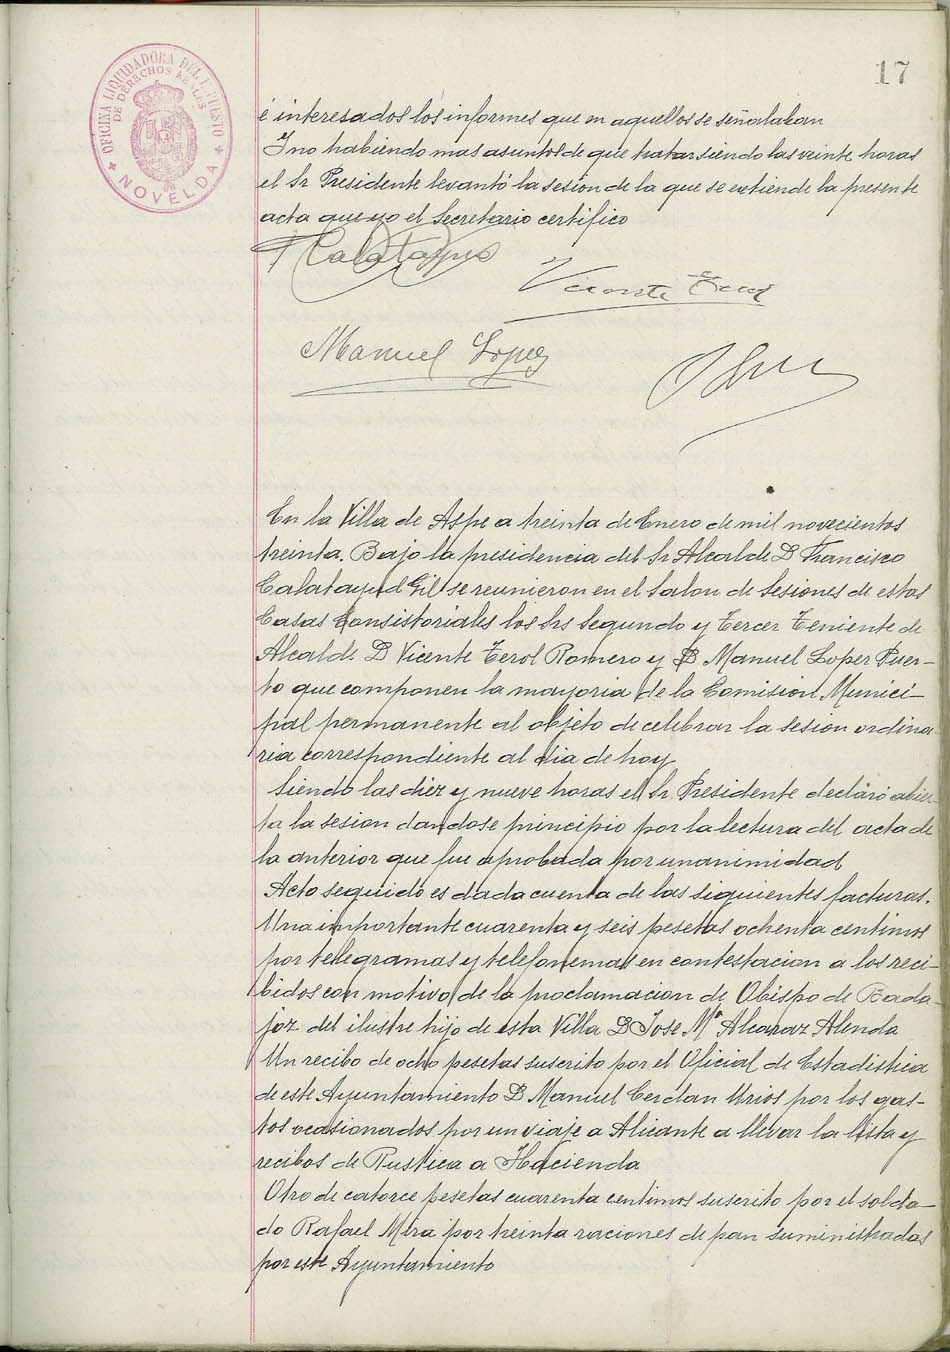 17
OFICINA LIQUIDADORA DEL IMPUESTO
DE DERECHOS REALES
NOVELDA
é interesados los informes que en aquellos se señalaban
Y no habiendo mas asuntos de que tratar siendo las veinte horas
el Sr Presidente levantó la sesion de la que se extiende la presente
acta que yo el Secretario certifico
F Calatayud
Vicente Terol
Manuel Lopez
En la Villa de Aspe a treinta de Enero de mil novecientos
treinta. Bajo la presidencia del Sr Alcalde D Francisco
Calatayud Gil se reunieron en el Salon de Sesiones de estas
Casas Consistoriales los Srs Segundo y Tercer Teniente de
Alcalde D Vicente Terol Romero y D. Manuel Lopez Puer-
to que componen la mayoria de la Comision Munici-
pal permanente al objeto de celebrar la sesion ordina-
ria correspondiente al dia de hoy
Siendo las diez y nueve horas el Sr. Presidente declaró abier-
ta la sesion dandose principio por la lectura del acta de
la anterior que fue aprobada por unanimidad
Acto seguido es dada cuenta de las siguientes facturas.
Una importante cuarenta y seis pesetas ochenta centimos
por telegramas y telefonemas en contestacion a los reci-
bidos con motivo de la proclamacion de Obispo de Bada-
joz del ilustre hijo de esta Villa D Jose Mª Alcaraz Alenda
Un recibo de ocho pesetas suscrito por el Oficial de Estadistica
de este Ayuntamiento D Manuel Cerdan Urios por los gas-
tos ocasionados por un viaje a Alicante a llevar la lista y
recibos de Rustica a Hacienda
Otro de catorce pesetas cuarenta centimos suscrito por el solda-
do Rafael Mira por treinta raciones de pan suministradas
por este Ayuntamiento